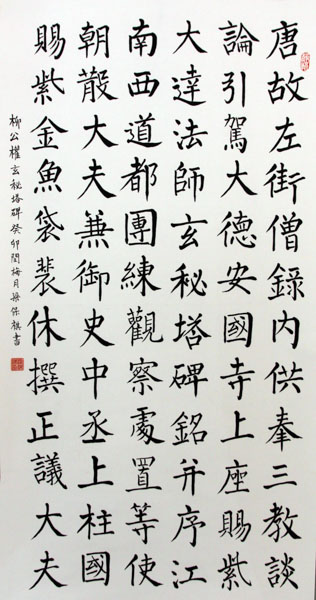 唐故左街僧錄內供奉三教談
論引駕大德安國寺上座賜紫
大達法師玄秘塔碑銘并序江
南西道都團練觀察處置等使
朝散大夫兼御史中丞上柱國
賜紫金魚袋裴休撰正議大夫
柳公權玄秘塔碑癸卯閏梅月梁祺書